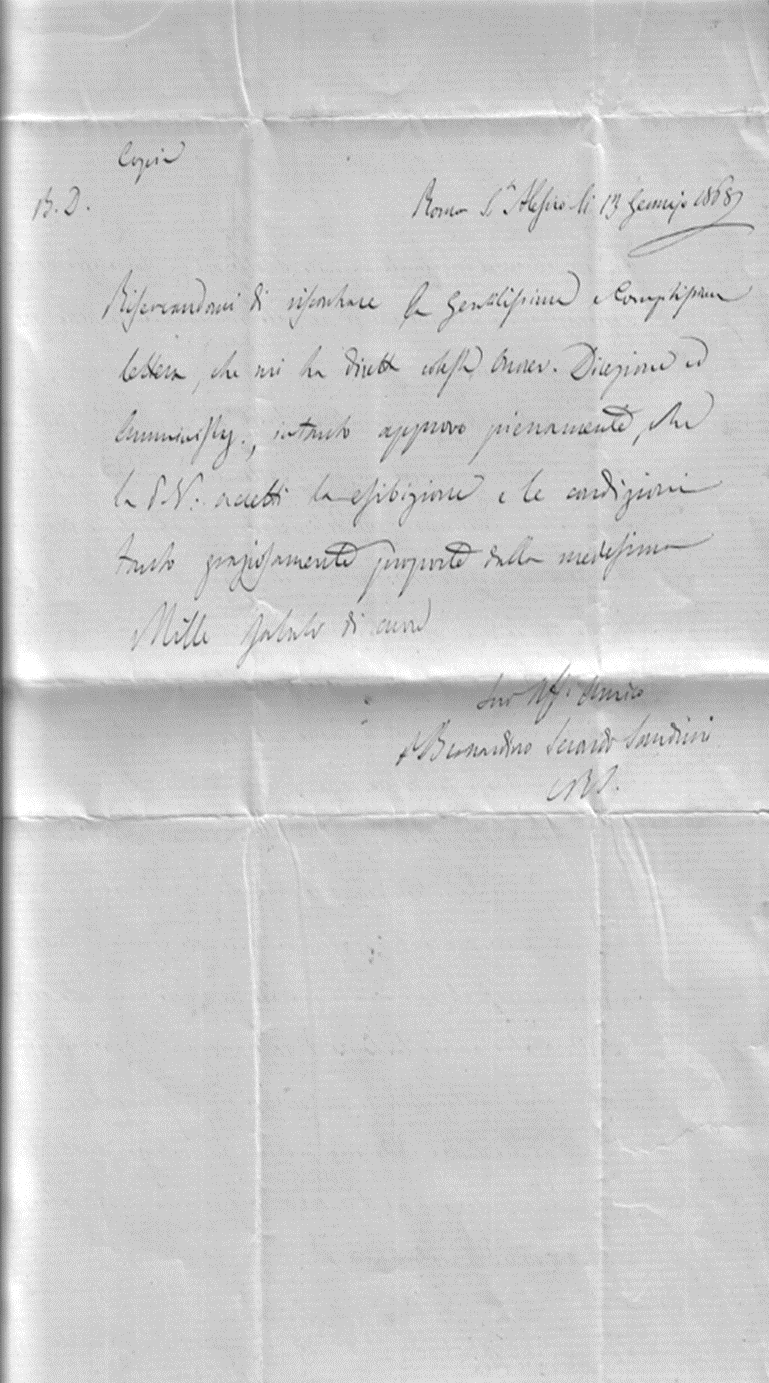 Copia
B. D.
Roma S. Alessio li 13 Gennajo 1868
Riservandomi di riscontrare la gentilissima e compitissima
lettera, che mi ha diretta cotesta Onor. Direzione ed
Amministr., intanto approvo pienamente, che
la P. V. accetti la esibizione e le condizioni
tanto graziosamente proposte dalla medesima
Mille saluti di cuore
Suo Aff. Amico
D. Bernardino Sandrini
CRS.